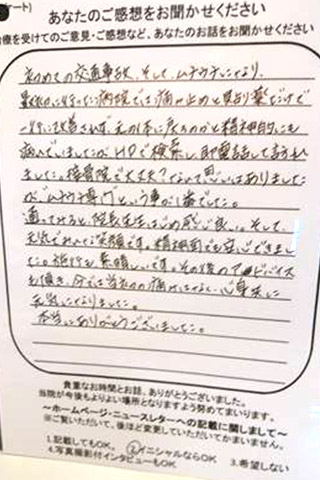 ート)
あなたのご感想をお聞かせください
治療を受けてのご意見・ご感想など、あなたのお話をお聞かせください
初めての交通事故、そして、ムチウチになり、
最初に行った病院では痛み止めと貼り薬だけで
一向に改善されず、元の体に戻るのかと精神的にも
病んでいましたがHPで検索し、即電話して訪ね
ました。接骨院で大丈夫?なんて思いはありました
が"ムチウチ専門"という事が1番でした。
通ってみると、院長先生はじめ感じ良い。そして、
元気できれいな笑顔です。精神面でも安心できまし
た。施術も素晴しいです。その後のアドバイス
も頂き、今では当初の痛みはなく、心身共に
元気になりました。
本当にありがとうございました。
貴重なお時間とお話、ありがとうございました。
当院が今後もよりよい場所となりますよう努めてまいります。
～ホームページ・ニュースレターへの記載に関しまして～
※ご覧いただいて、後ほど変更していただいてかまいません。
1.記載してもOK. ②イニシャルならOK 3.希望しない
4.写真撮影付インタビューもOK